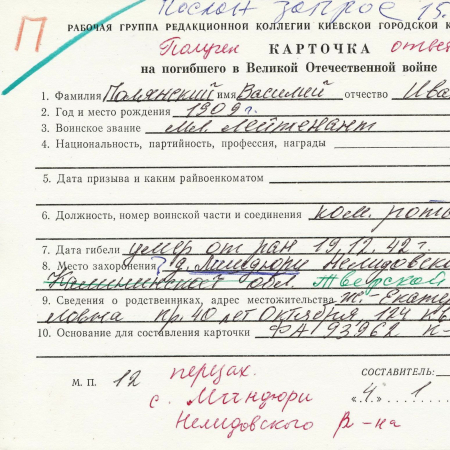 П Послан запрос 15.
РАБОЧАЯ ГРУППА РЕДАКЦИОННОЙ КОЛЛЕГИИ КИЕВСКОЙ ГОРОДСКОЙ К
Получен КАРТОЧКА ответ
на погибшего в Великой Отечественной войне
1. Фамилия Полянский имя Василий отчество Ива
2. Год и место рождения 1909 г.
3. Воинское звание мл. лейтенант
4. Национальность, партийность, профессия, награды
5. Дата призыва и каким райвоенкоматом
6. Должность, номер воинской части и соединения ком. роты
7. Дата гибели умер от ран 19.12.42 г.
8. Место захоронения д. Нелидовско
обл. Тверской
9. Сведения о родственниках, адрес местожительства ж.-Екатер
пр. 40 лет Октября, 124 кв
10. Основание для составления карточки 93962
М. П. 12 перезах. СОСТАВИТЕЛЬ:
с. Мчндюри „4“ 1
Нелидовского р-на